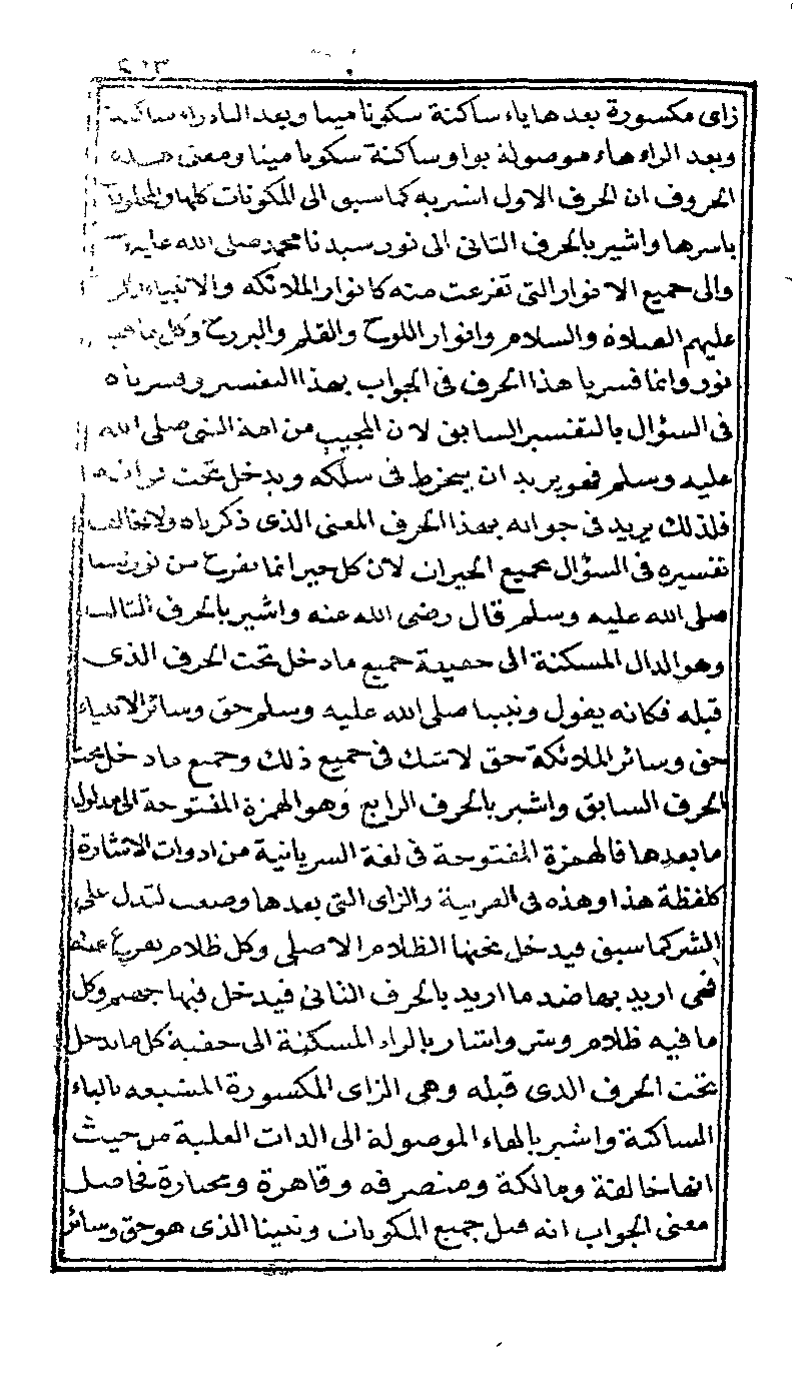 زاى مكسورة بعدها ياء ساكنة سكونا ميتا وبعد الياء راء ساكنة
وبعد الراء هاء موصولة بواو ساكنة سكونا ميتا ومعنى هذه
الحروف ان الحرف الاول اشير به كما سبق الى المكونات كلها والمخلوقات
باسرها واشير بالحرف الثانى الى نور سيدنا محمد صلى الله عليه
والى جميع الانوار التى تفرعت منه كانوار الملائكة والانبياء
عليهم الصلاة والسلام وانوار اللوح والقلم والبرزخ وكل ما فيه
نور وانما فسرنا هذا الحرف فى الجواب بهذا التفسير وفسرناه
فى السؤال بالتفسير السابق لان المجيب من امة النبى صلى الله
عليه وسلم فهو يريد ان ينخرط فى سلكه ويدخل تحت
فلذلك يريد فى جوابه بهذا الحرف المعنى الذى ذكرناه ولا يخالف
تفسيره فى السؤال بجميع الخيرات لان كل خير انما تفرع من نور نبينا
صلى الله عليه وسلم قال رضى الله عنه واشير بالحرف الثالث
وهو الدال المسكنة الى حقيقة جميع ما دخل تحت الحرف الذى
قبله فكانه يقول ونبينا صلى الله عليه وسلم حق وسائر الانبياء
حق وسائر الملائكة حق لا شك فى جميع ذلك وجميع ما دخل تحت
الحرف السابق واشير بالحرف الرابع وهو الهمزة المفتوحة الى مدلول
ما بعدها فالهمزة المفتوحة فى لغة السريانية من ادوات الاشارة
كلفظة هذا وهذه فى العربية والزاى التى بعدها وضعت لتدل على
الشر كما سبق فيدخل تحتها الظلام الاصلى وكل ظلام يتفرع عنه
فهى اريد بها ضد ما اريد بالحرف الثانى فيدخل فيها جهنم وكل
ما فيه ظلام وشر واشار بالراء المسكنة الى حقية كل ما يدخل
تحت الحرف الذى قبله وهى الزاى المكسورة المشبعة بالياء
الساكنة واشير بالهاء الموصولة الى الذات العلية من حيث
انها خالقة ومالكة ومتصرفه وقاهرة ومختارة فحاصل
معنى الجواب انه قيل جميع المكونات ونبينا الذى هو حق وسائر